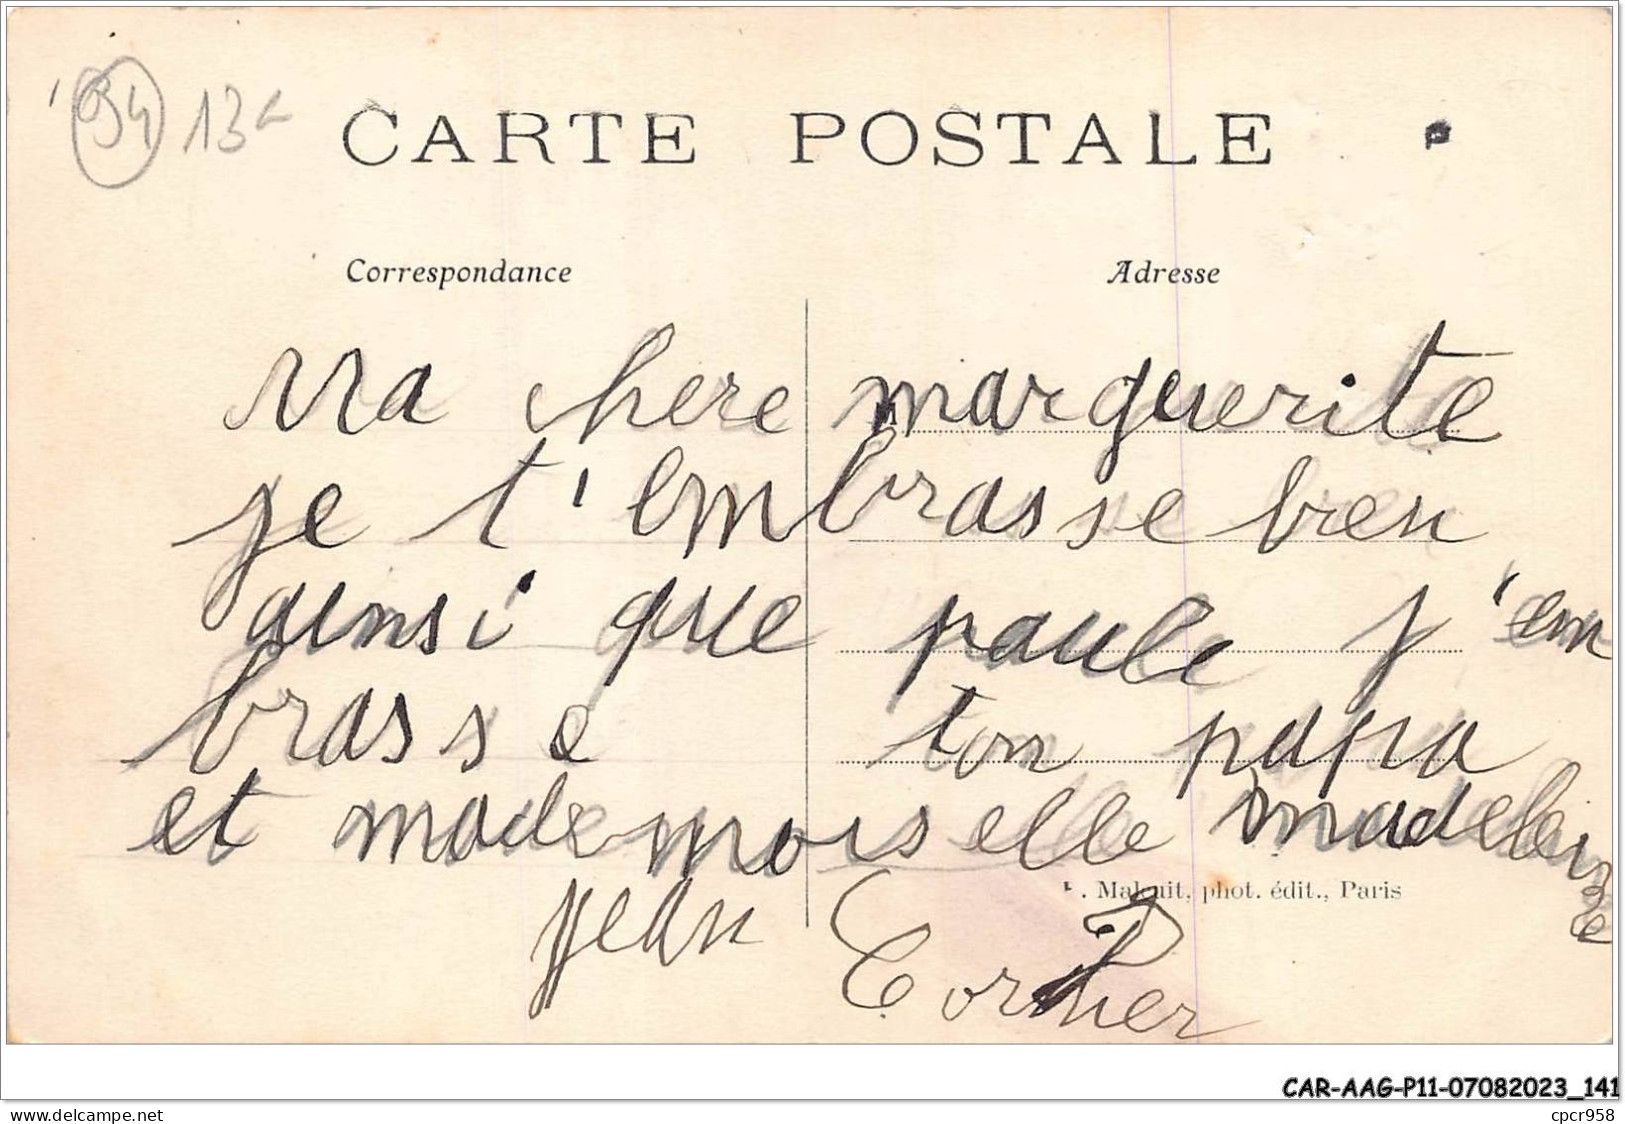 94 13
CARTE POSTALE
Correspondance
Adresse
Ma chere marguerite
je t'embrasse bien
ainsi que paule j'em
brasse ton papa
et mademoiselle madeleine
Malcuit, phot. édit., Paris
jean
CAR-AAG-P11-07082023_141
www.delcampe.net
cpcr958